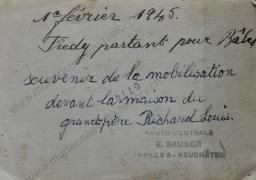 1er février 1945.
Fredy partant pour Bâle
souvenir de la mobilisation
devant la maison du
grand-père Richard Louis.
PHOTO-CENTRALE
E. SAUSER
VILLE 6 - NEUCHÂTEL